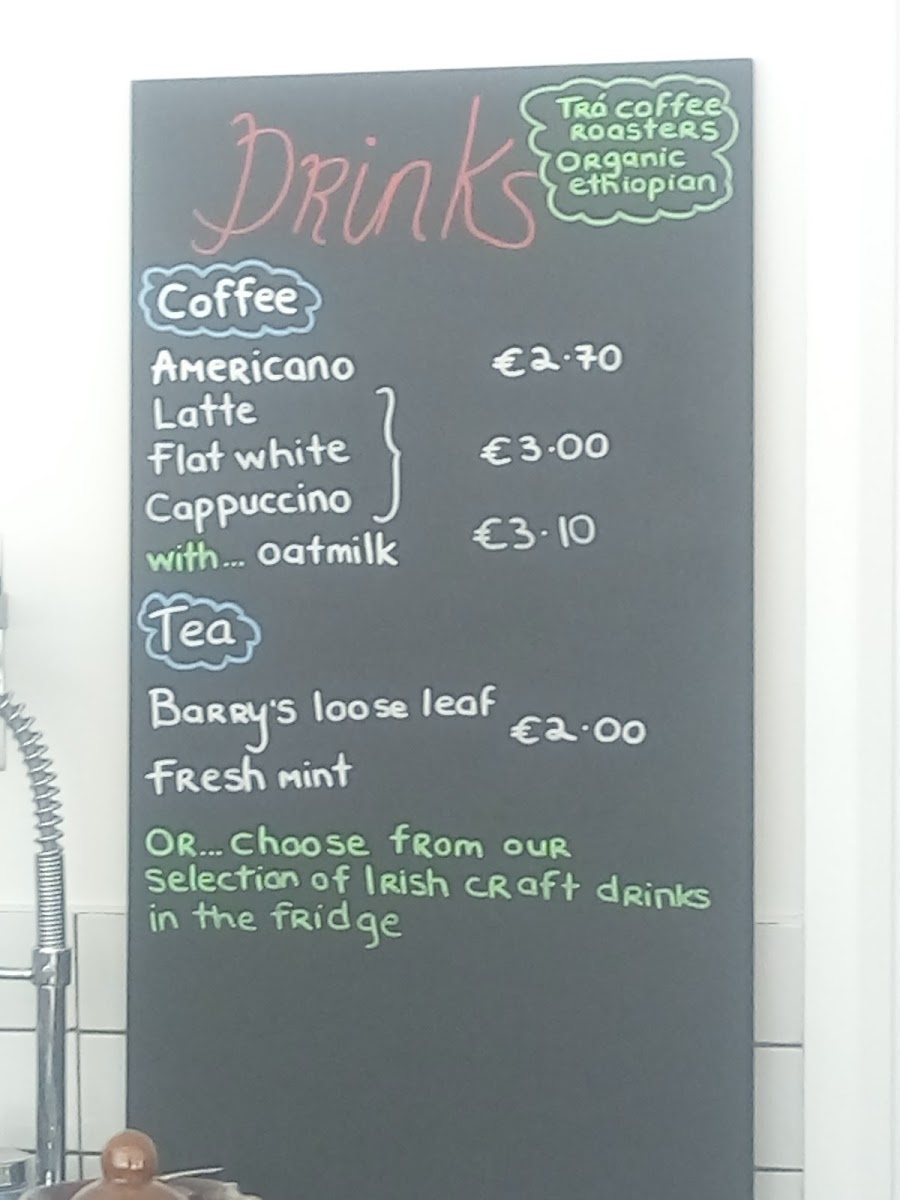 Drinks
Trá Coffee
Roasters
Organic
ethiopian
Coffee
Americano €2.70
Latte
Flat white €3.00
Cappuccino
with... oatmilk €3.10
Tea
Barry's loose leaf
€2.00
Fresh mint
OR... choose from our
selection of Irish craft drinks
in the fridge